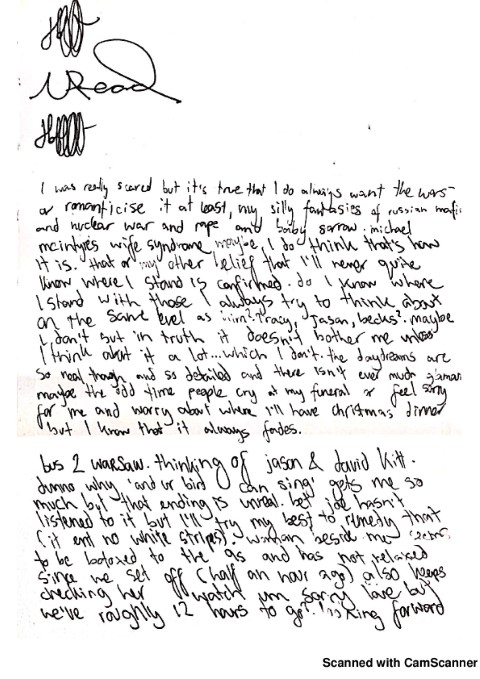 URead
I was really scared but it's true that I do always want the worst
or romanticise it at least, my silly fantasies of russian mafia
and nuclear war and rape and baby sorrow. michael
mcintyres wife syndrome maybe, I do think that's how
it is. that or my other belief that I'll never quite
know where I stand is confirmed. do I know where
I stand with those I always try to think about
on the same level as him? Tracy, Jason, becks? maybe
I don't but in truth it doesn't bother me unless
I think about it a lot... which I don't. the daydreams are
so real though and so detailed and there isn't ever much
maybe the odd time people cry at my funeral or feel sorry
for me and worry about where I'll have christmas dinner
but I know that it always fades.
bus 2 warsaw. thinking of jason & david kitt.
dunno why 'and ur bird can sing' gets me so
much but that ending is unreal. bet joe hasn't
listened to it but I'll try my best to remedy that
(it end no white stripes). woman beside me seems
to be botoxed to the 9s and has not relaxed
since we set off (half an hour ago) also, keeps
checking her watch um sorry love but
we've roughly 12 hours to go?! looking forward
Scanned with CamScanner